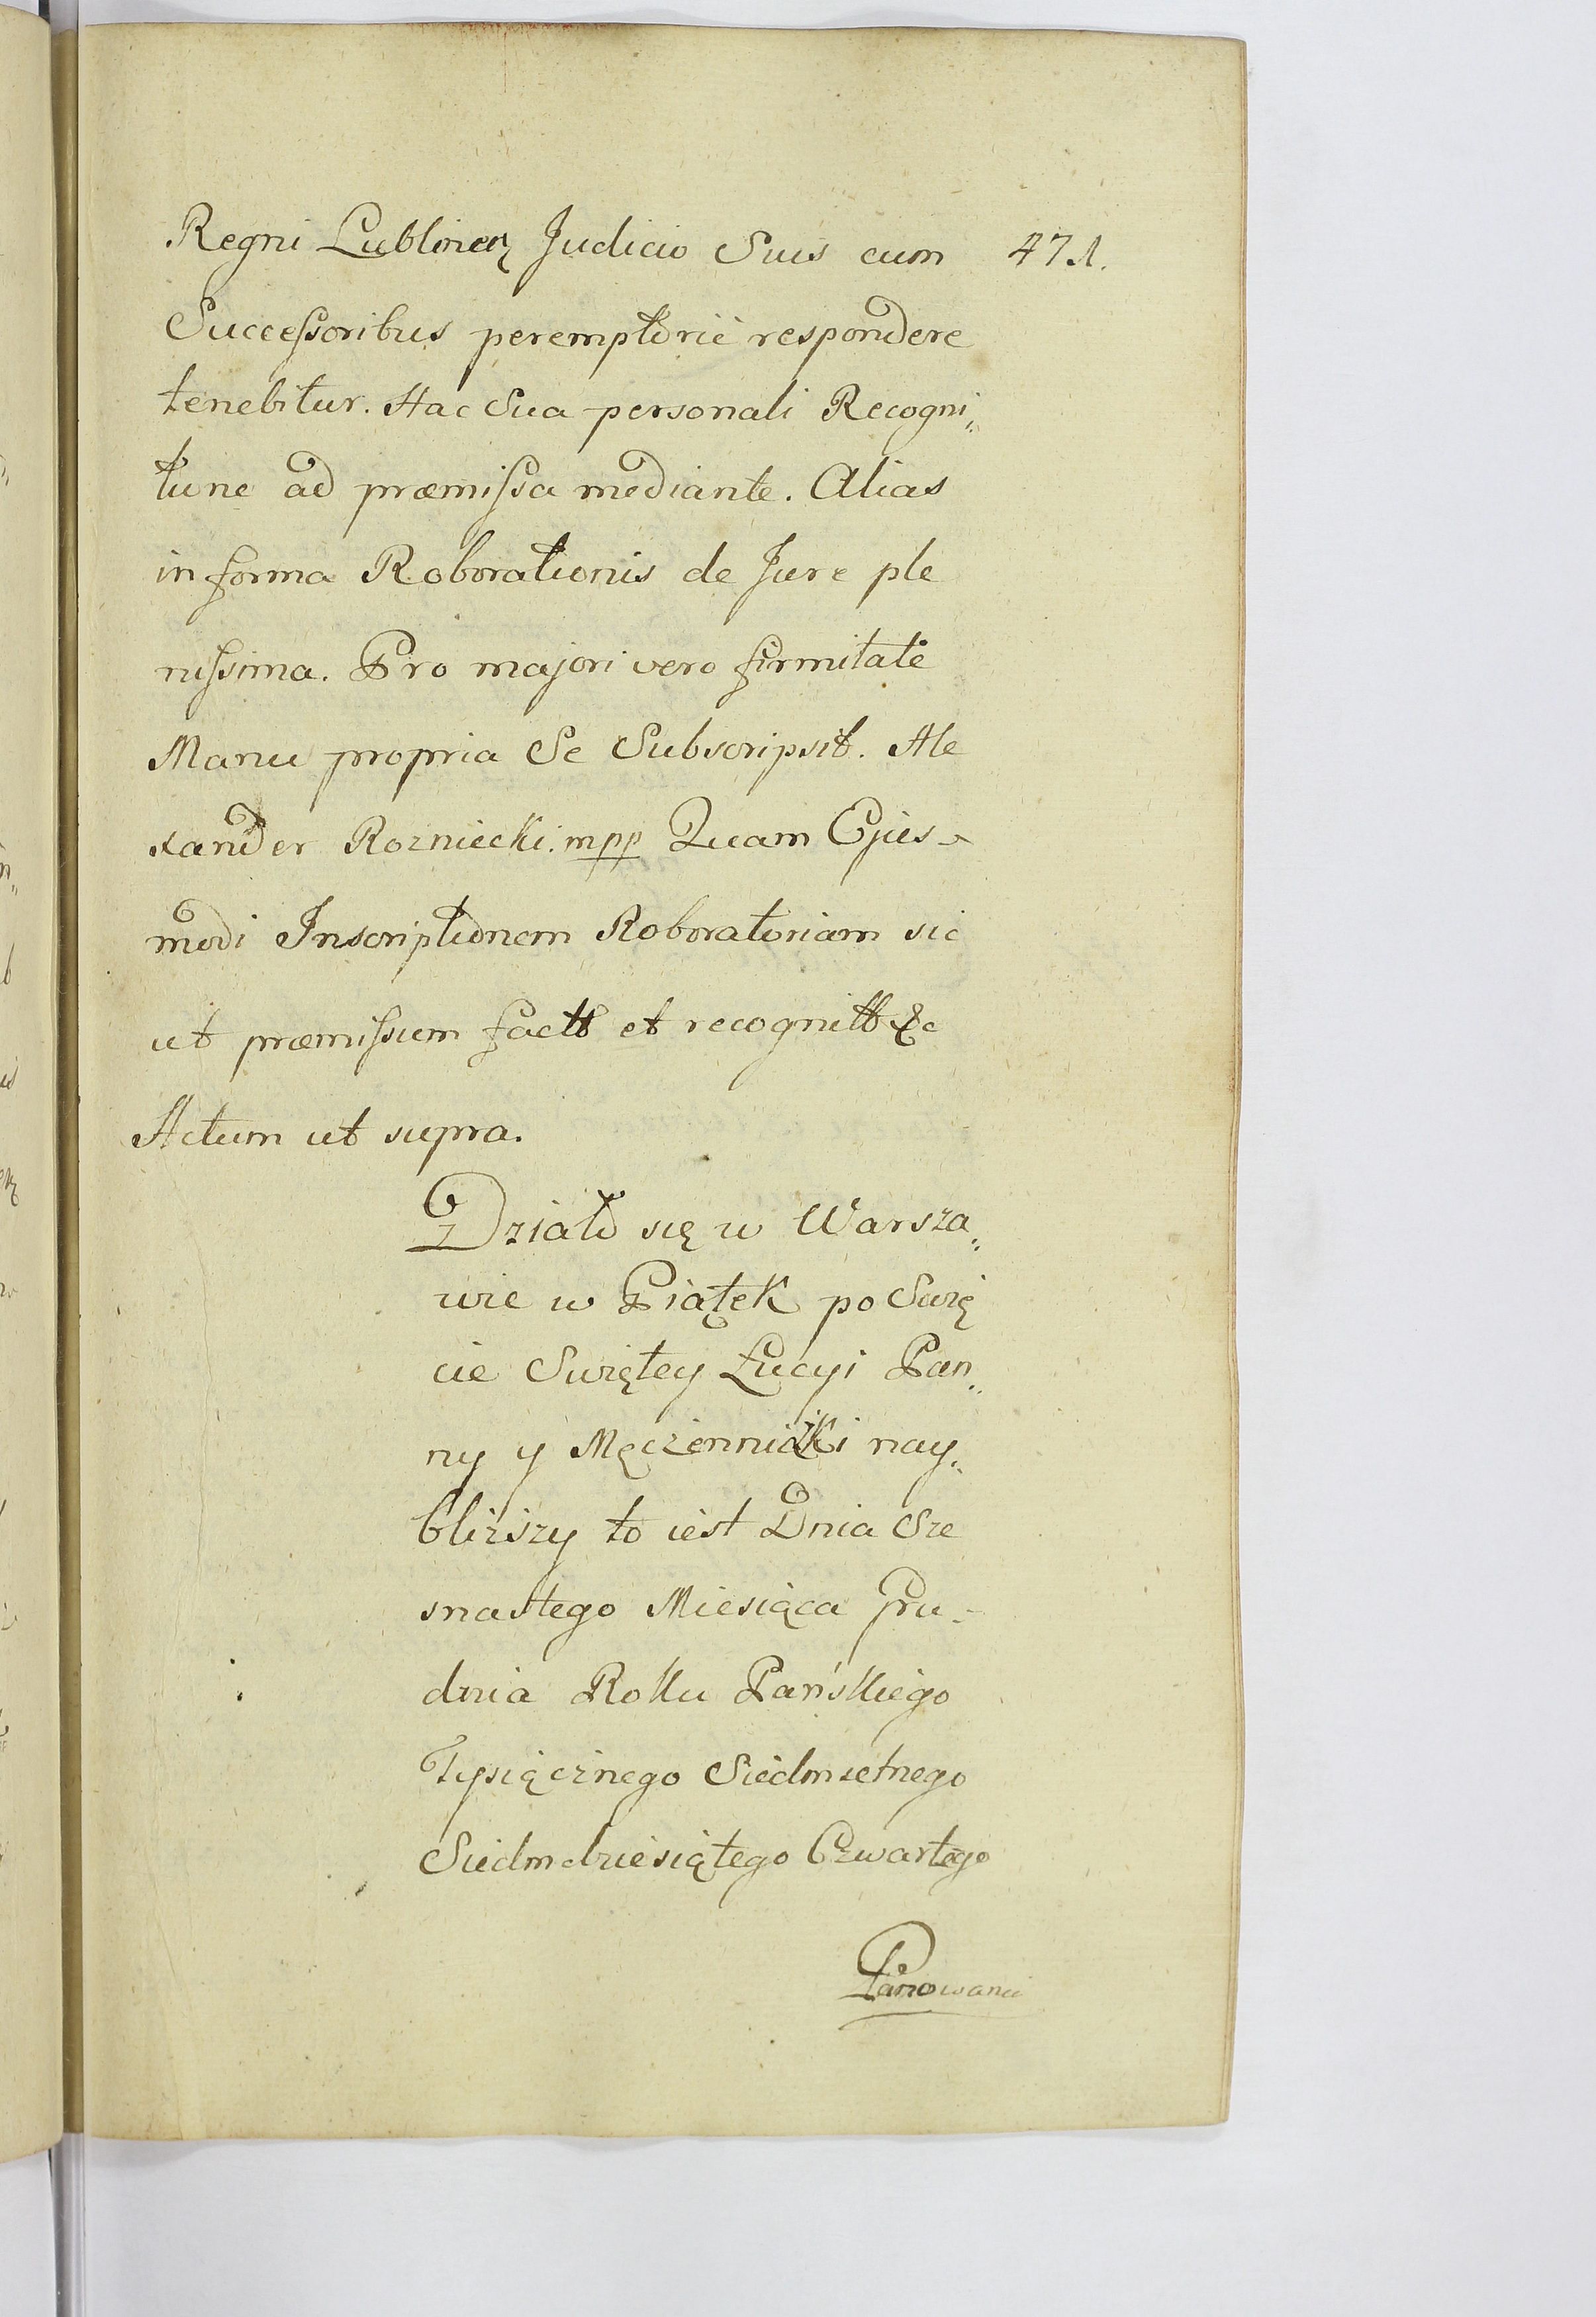 Regni Lublinen Judicio Suis cum 471.
Successoribus peremptorie respondere
tenebitur. Hac Sua personali Recogni„
tione ad præmissa mediante. Alias
in forma Roborationis de Jure ple
nissima. Pro majori vero firmitate
Manu propria Se Subscripsit. Ale
xander Rozniecki. mpp Quam Ejus-
modi Inscriptionem Roboratoriam sic
ut præmissum factt et recognitt &c
Actum ut supra.
Działo się w Warsza„
wie w Piątek po Swię
cie Swiętey Łucyi Pan„
ny y Męczenniczki nay„
bliższy to iest Dnia Sze
snastego Miesiąca Gru-
dnia Roku Pańskiego
Tysiącznego Siedmsetnego
Siedmdziesiątego Czwartego
Panowania